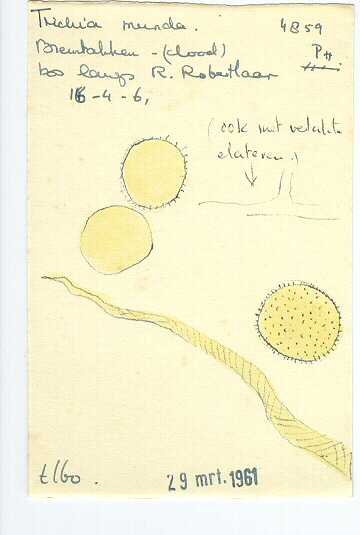 Trichia munda. 4859
Bremtakken - (dood) PH
bos langs R. Robertlaan
16-4-61
(ook met vertakte
elateren.)
Elbo.
29 mrt. 1961